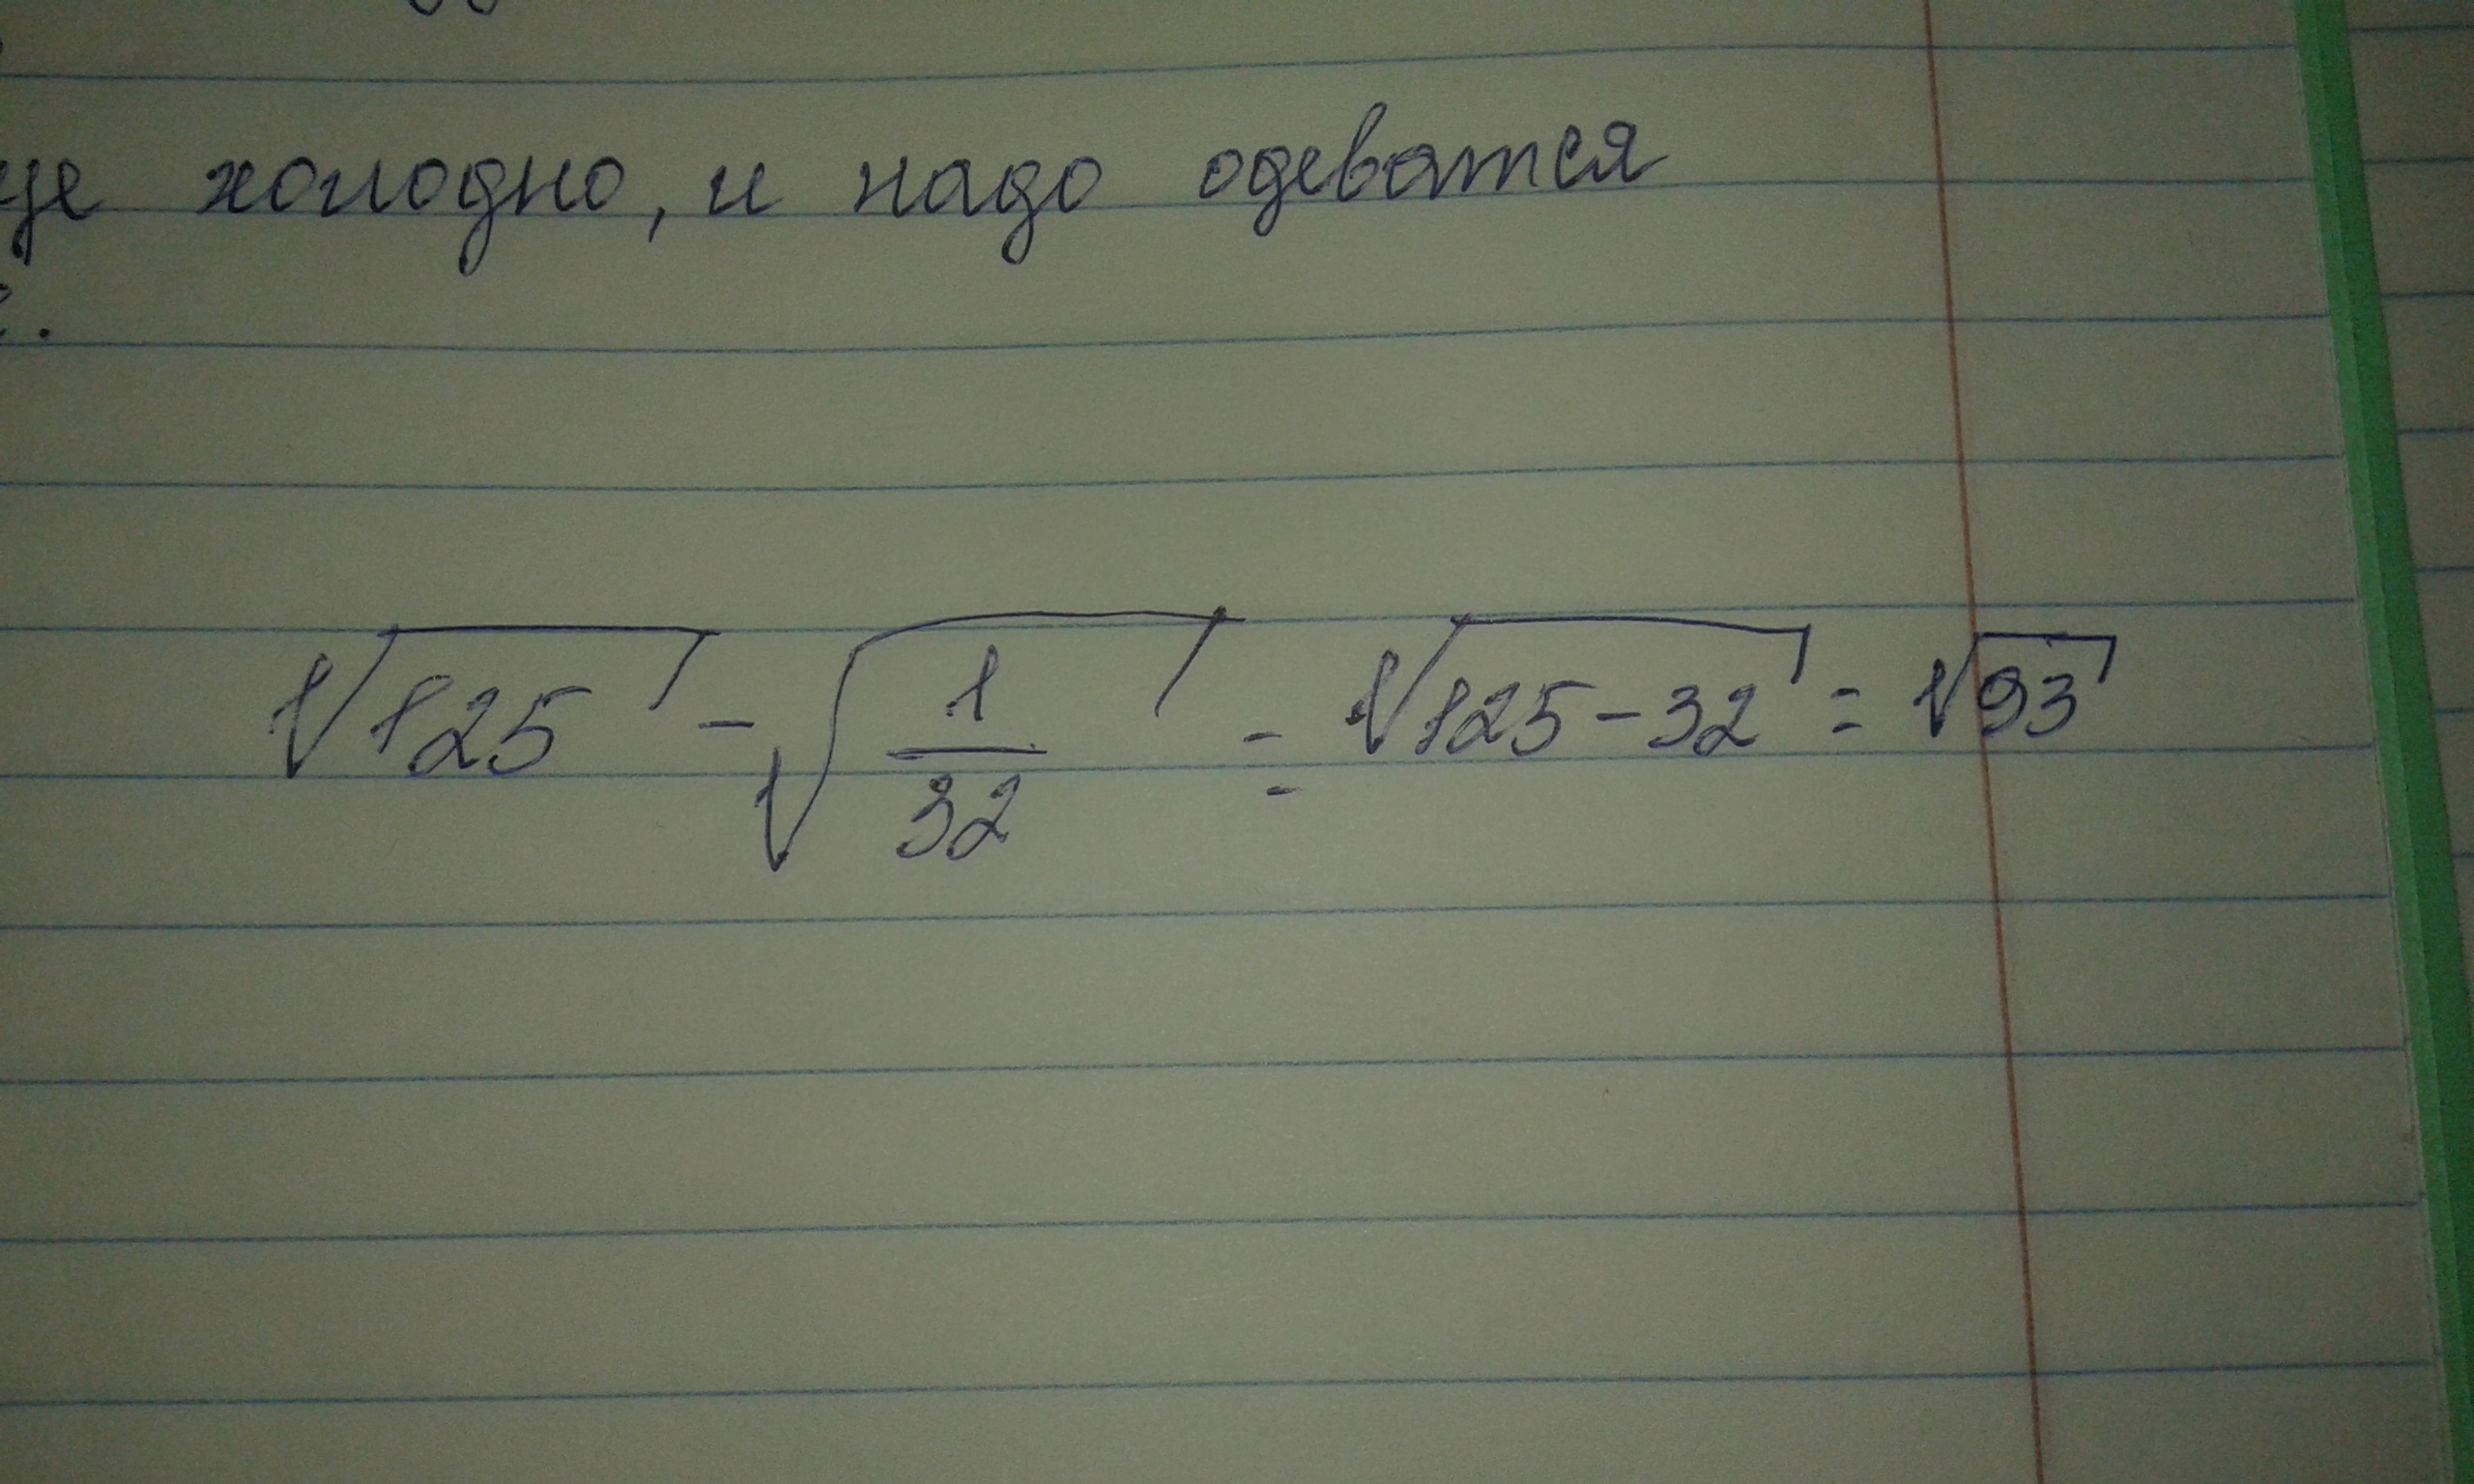 холодно, и надо одеватся
√125 - √1/32 = √125-32 = √93